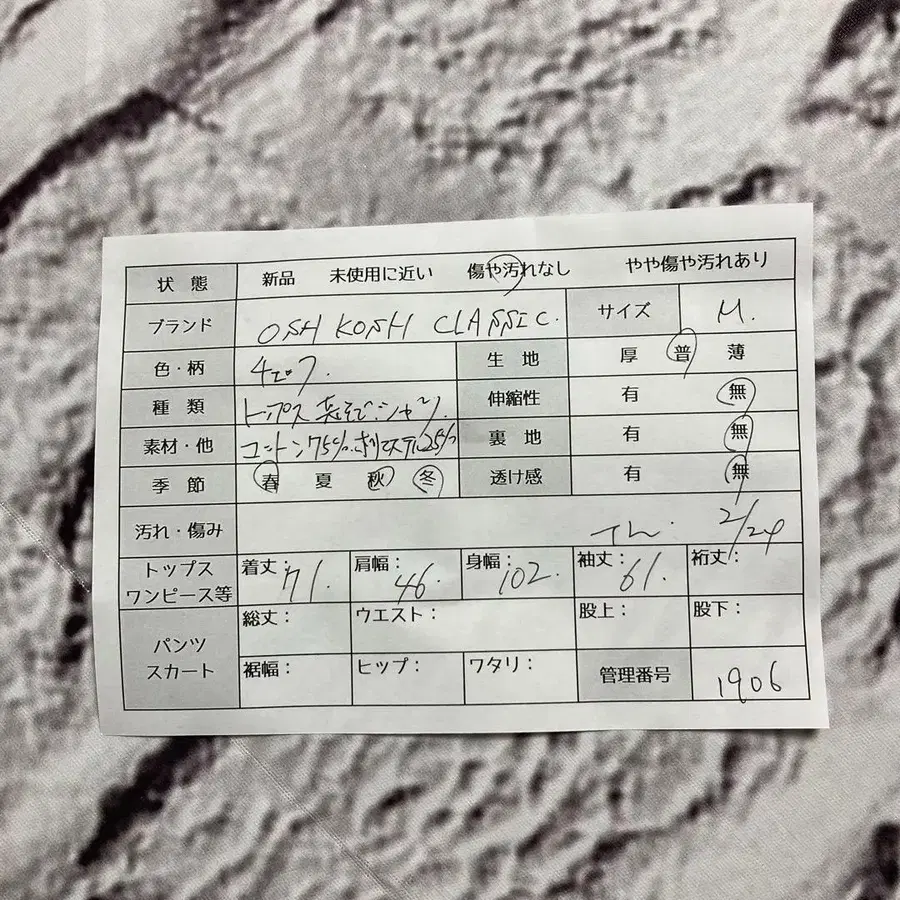 状態 新品 未使用に近い 傷や汚れなし やや傷や汚れあり
ブランド OSH KOSH CLASSIC. サイズ M.
色・柄 チェック. 生地 厚 普 薄
種類 トップス 長そでシャツ. 伸縮性 有 無
素材・他 コットン75%.ポリエステル25% 裏地 有 無
季節 春 夏 秋 冬 透け感 有 無
汚れ・傷み 2/24
トップス ワンピース等 着丈:71. 肩幅:46. 身幅:102. 袖丈:61. 裄丈:
パンツ スカート 総丈: ウエスト: 股上: 股下:
裾幅: ヒップ: ワタリ: 管理番号 1906